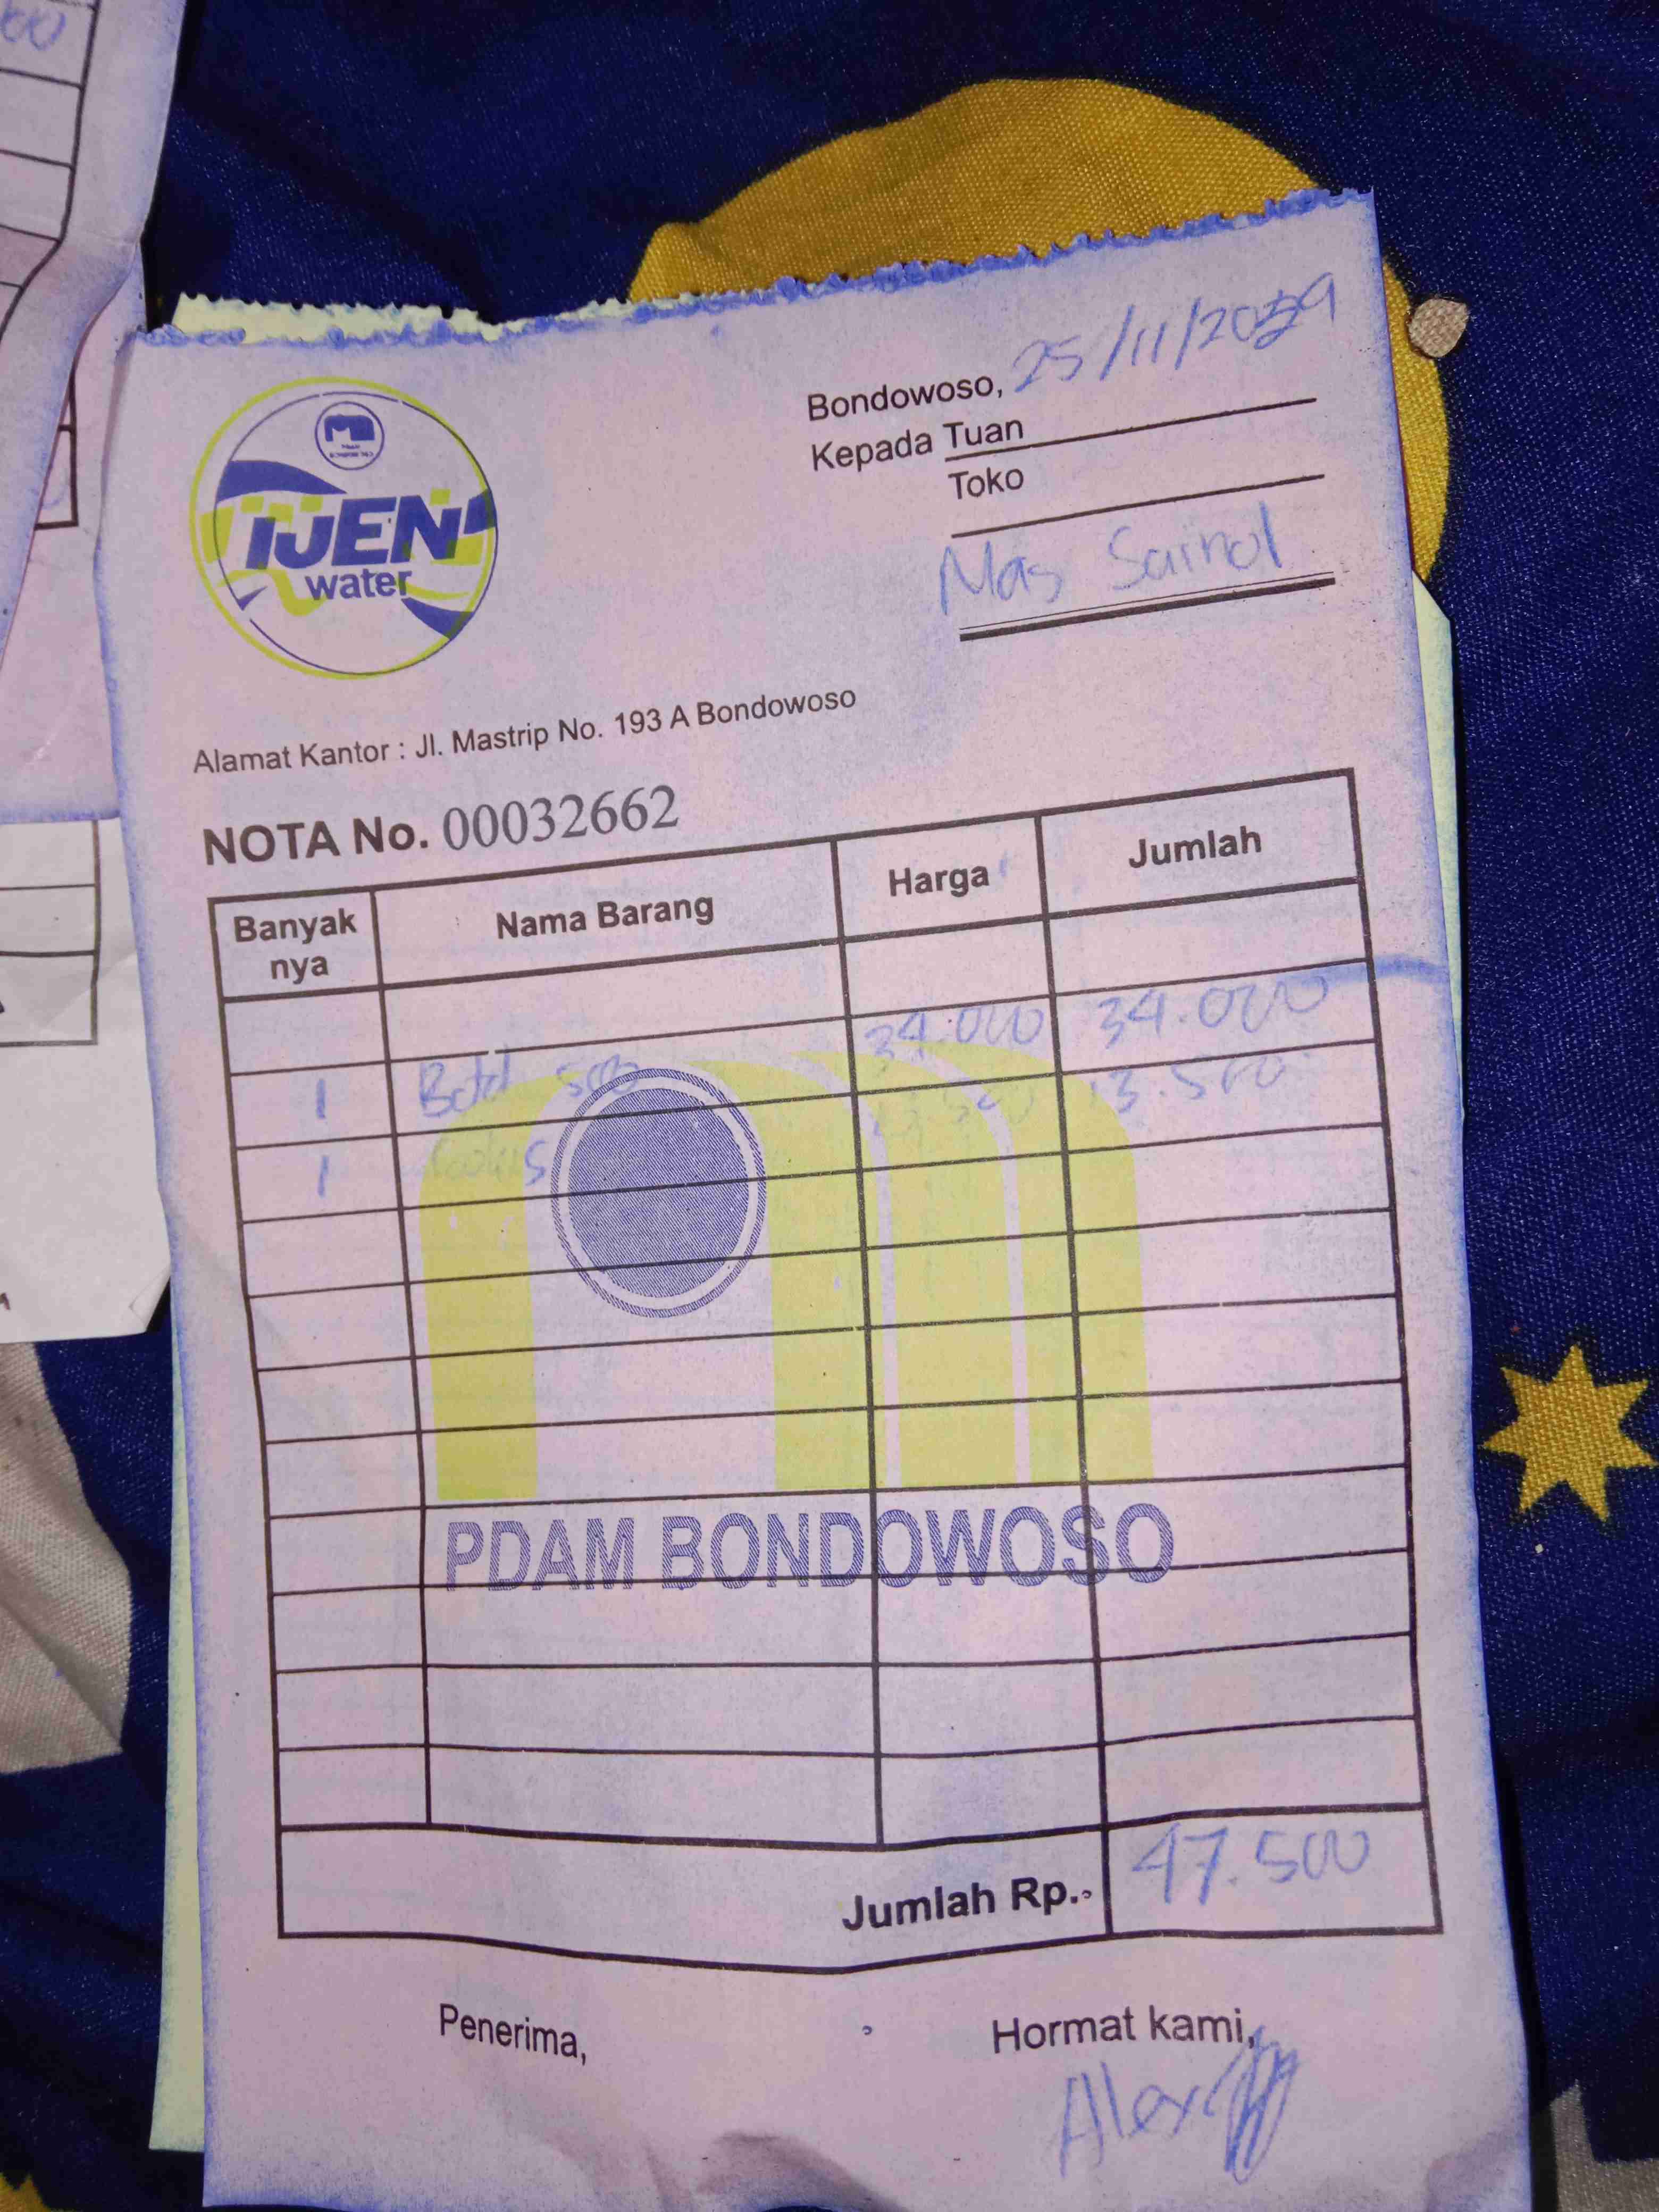 IJEN
water
Bondowoso, 25/11/20
Kepada Tuan
Toko
Mas Sainol
Alamat Kantor : Jl. Mastrip No. 193 A Bondowoso
NOTA No. 00032662
Banyak nya Nama Barang Harga Jumlah
1 Botol 500 34.000 34.000
1 13.500 13.500
PDAM BONDOWOSO
Jumlah Rp. 47.500
Penerima, Hormat kami,
Alex